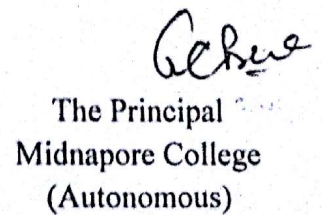 The Principal
Midnapore College
(Autonomous)